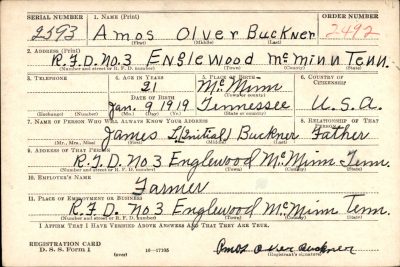 SERIAL NUMBER 1. NAME (Print) ORDER NUMBER
2593 Amos Olver Buckner 2492
(First) (Middle) (Last)
2. ADDRESS (Print)
R.F.D. No. 3 Englewood McMinn Tenn.
(Number and street or R. F. D. number) (Town) (County) (State)
3. TELEPHONE 4. AGE IN YEARS 5. PLACE OF BIRTH 6. COUNTRY OF CITIZENSHIP
21 McMinn
(Town or county)
DATE OF BIRTH
Jan. 9 1919 Tennessee U.S.A.
(Exchange) (Number) (Mo.) (Day) (Yr.) (State or country)
7. NAME OF PERSON WHO WILL ALWAYS KNOW YOUR ADDRESS 8. RELATIONSHIP OF THAT PERSON
James L(Initial) Buckner Father
(Mr., Mrs., Miss) (First) (Middle) (Last)
9. ADDRESS OF THAT PERSON
R.F.D. No 3 Englewood McMinn Tenn.
(Number and street or R. F. D. number) (Town) (County) (State)
10. EMPLOYER'S NAME
Farmer
11. PLACE OF EMPLOYMENT OR BUSINESS
R.F.D. No 3 Englewood McMinn Tenn.
(Number and street or R. F. D. number) (Town) (County) (State)
I AFFIRM THAT I HAVE VERIFIED ABOVE ANSWERS AND THAT THEY ARE TRUE.
REGISTRATION CARD
D. S. S. Form 1 16—17105 Amos Olver Buckner
(Registrant's signature)